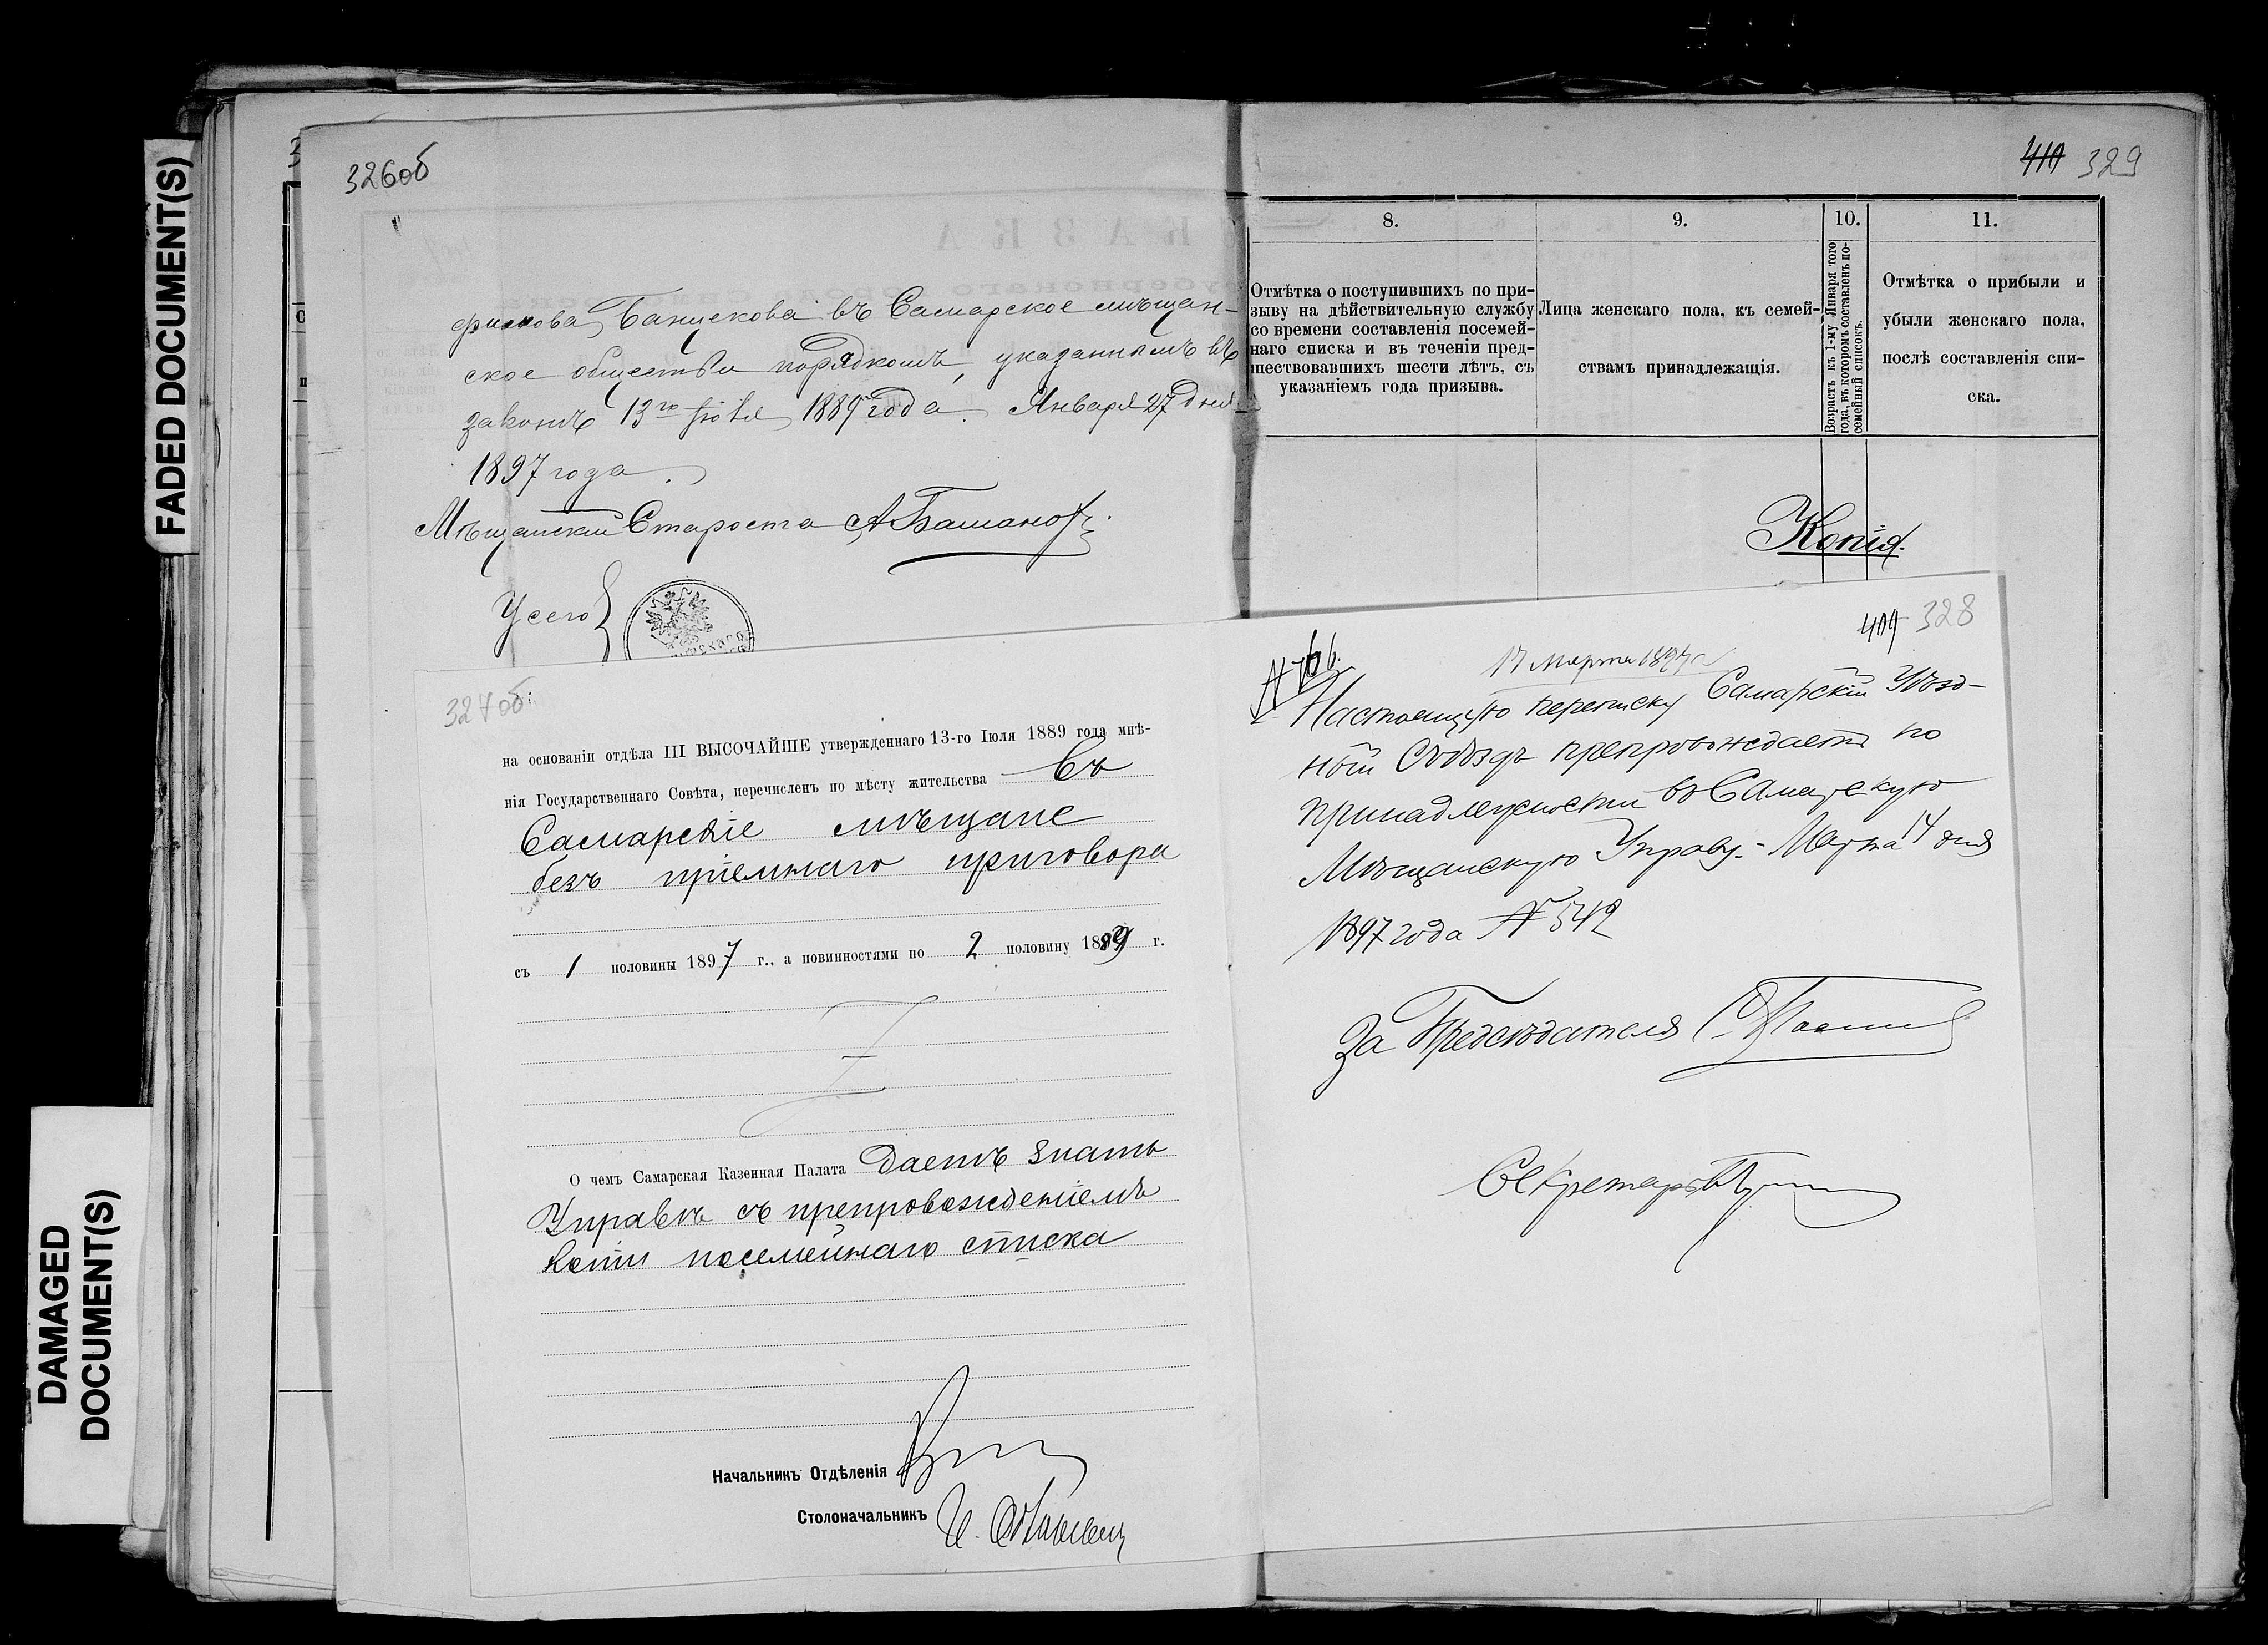 FADED DOCUMENT(S)
DAMAGED
DOCUMENT(S)
326об
въ Самарское мѣщан-
ское общество порядкомъ, указаннымъ въ
законѣ 13го Іюля 1889 года. Января 27 дня
1897 года.
Мѣщанскій Староста А Башановъ
327об:
на основаніи отдѣла III ВЫСОЧАЙШЕ утвержденнаго 13-го Іюля 1889 года мнѣ-
нія Государственнаго Совѣта, перечисленъ по мѣсту жительства въ
Самарскіе мѣщане
безъ пріемнаго приговора
съ 1 половины 1897 г., а повинностями по 2 половину 1899 г.
О чемъ Самарская Казенная Палата даетъ знать
Управѣ съ препровожденіемъ
копіи посемейнаго списка
Начальникъ Отдѣленія
Столоначальникъ
410 329
8.
9.
10.
11.
Отмѣтка о поступившихъ по при-
зыву на дѣйствительную службу
со времени составленія посемей-
наго списка и въ теченіи пред-
шествовавшихъ шести лѣтъ, съ
указаніемъ года призыва.
Лица женскаго пола, къ семей-
ствамъ принадлежащія.
Возрастъ къ 1-му Января того
года, въ которомъ составленъ по-
семейный списокъ.
Отмѣтка о прибыли и
убыли женскаго пола,
послѣ составленія спи-
ска.
Копія.
409 328
17 Марта 1897 г
Настоящую переписку Самарскій Уѣзд-
ный Съѣздъ препровождаетъ по
принадлежности въ Самарскую
Мѣщанскую Управу.- Марта 14 дня
1897 года № 542
За Предсѣдателя
Секретарь